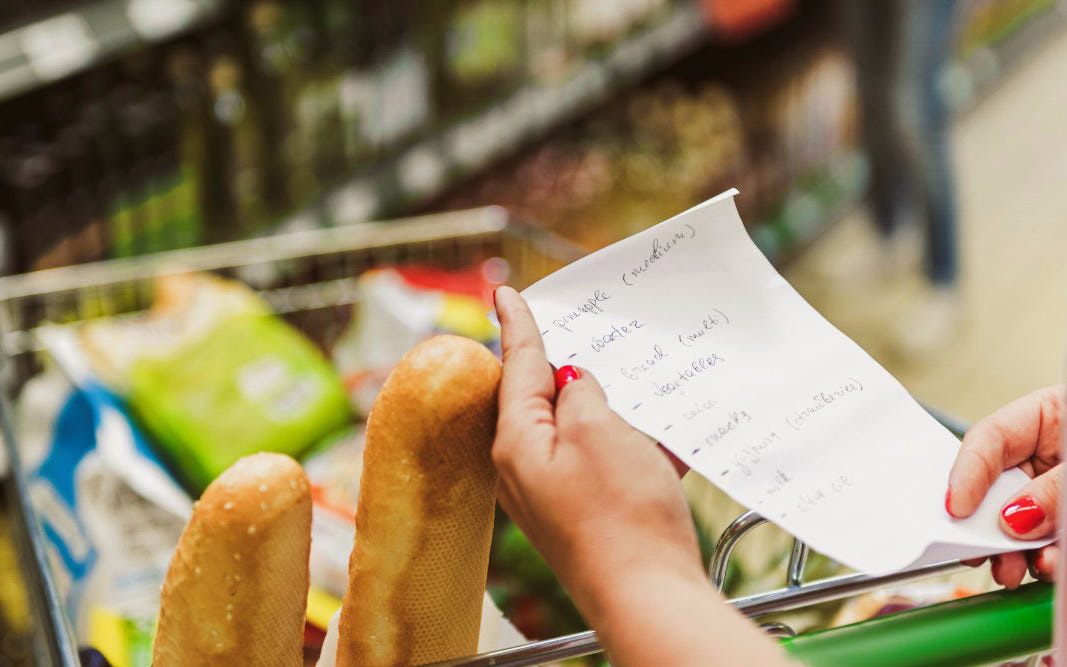 - pineapple (medium)
- water
- bread (multi)
- vegetables
- onion
- snacks
- yogurt (strawberries)
- milk
- olive oil